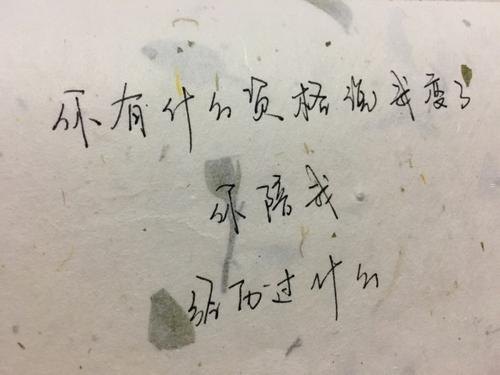 你有什么资格说我变了
你陪我
经历过什么